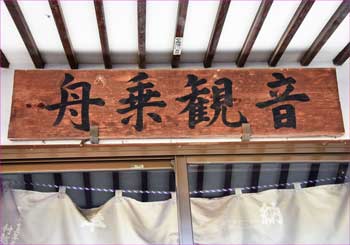 舟乗観音
納